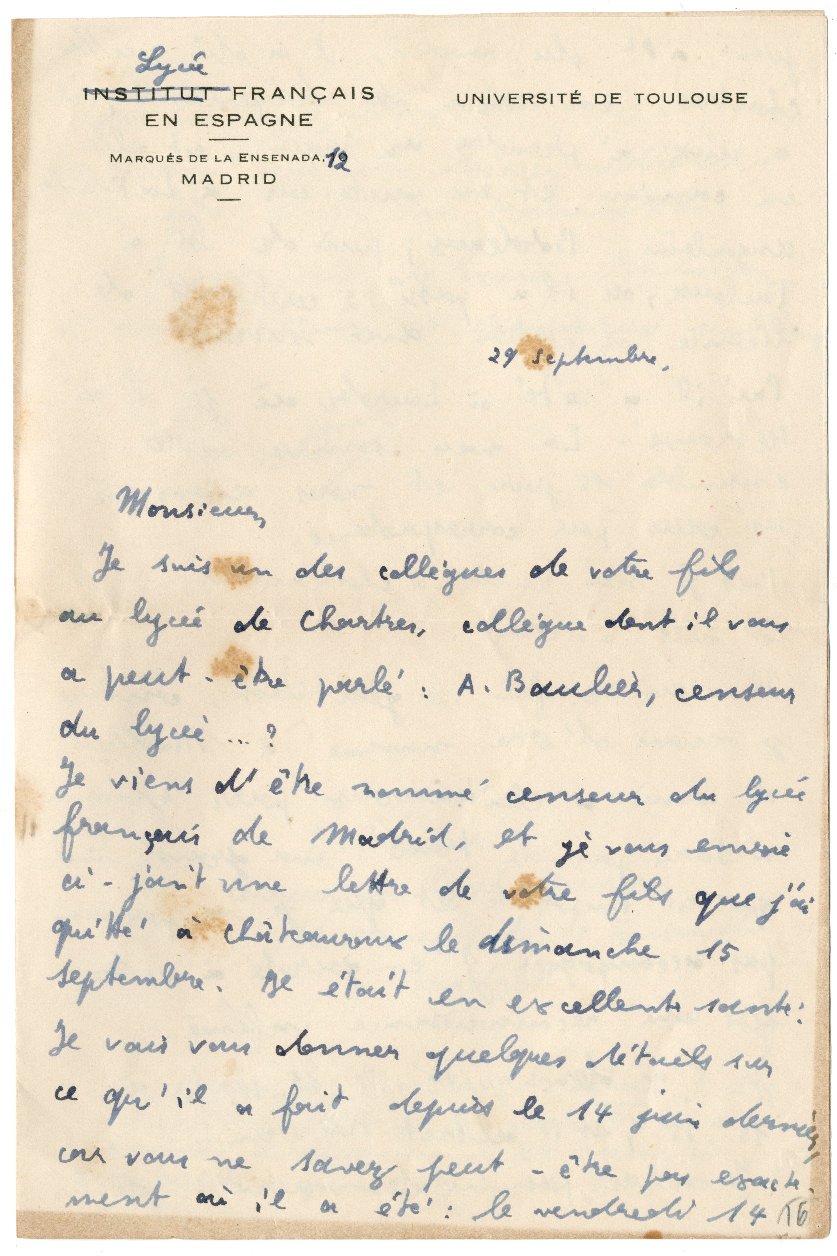 Lycée
INSTITUT FRANÇAIS
EN ESPAGNE
MARQUÉS DE LA ENSENADA, 12
MADRID
UNIVERSITÉ DE TOULOUSE
29 septembre,
Monsieur,
Je suis un des collègues de votre fils
au lycée de Chartres, collègue dont il vous
a peut-être parlé : A. Baulier, censeur
du lycée ... ?
Je viens d'être nommé censeur du lycée
français de Madrid, et je vous envoie
ci-joint une lettre de votre fils que j'ai
quitté à Châteauroux le dimanche 15
septembre. Il était en excellente santé.
Je vais vous donner quelques détails sur
ce qu'il a fait depuis le 14 juin dernier,
car vous ne savez peut-être pas exacte-
ment où il a été : le vendredi 14
16